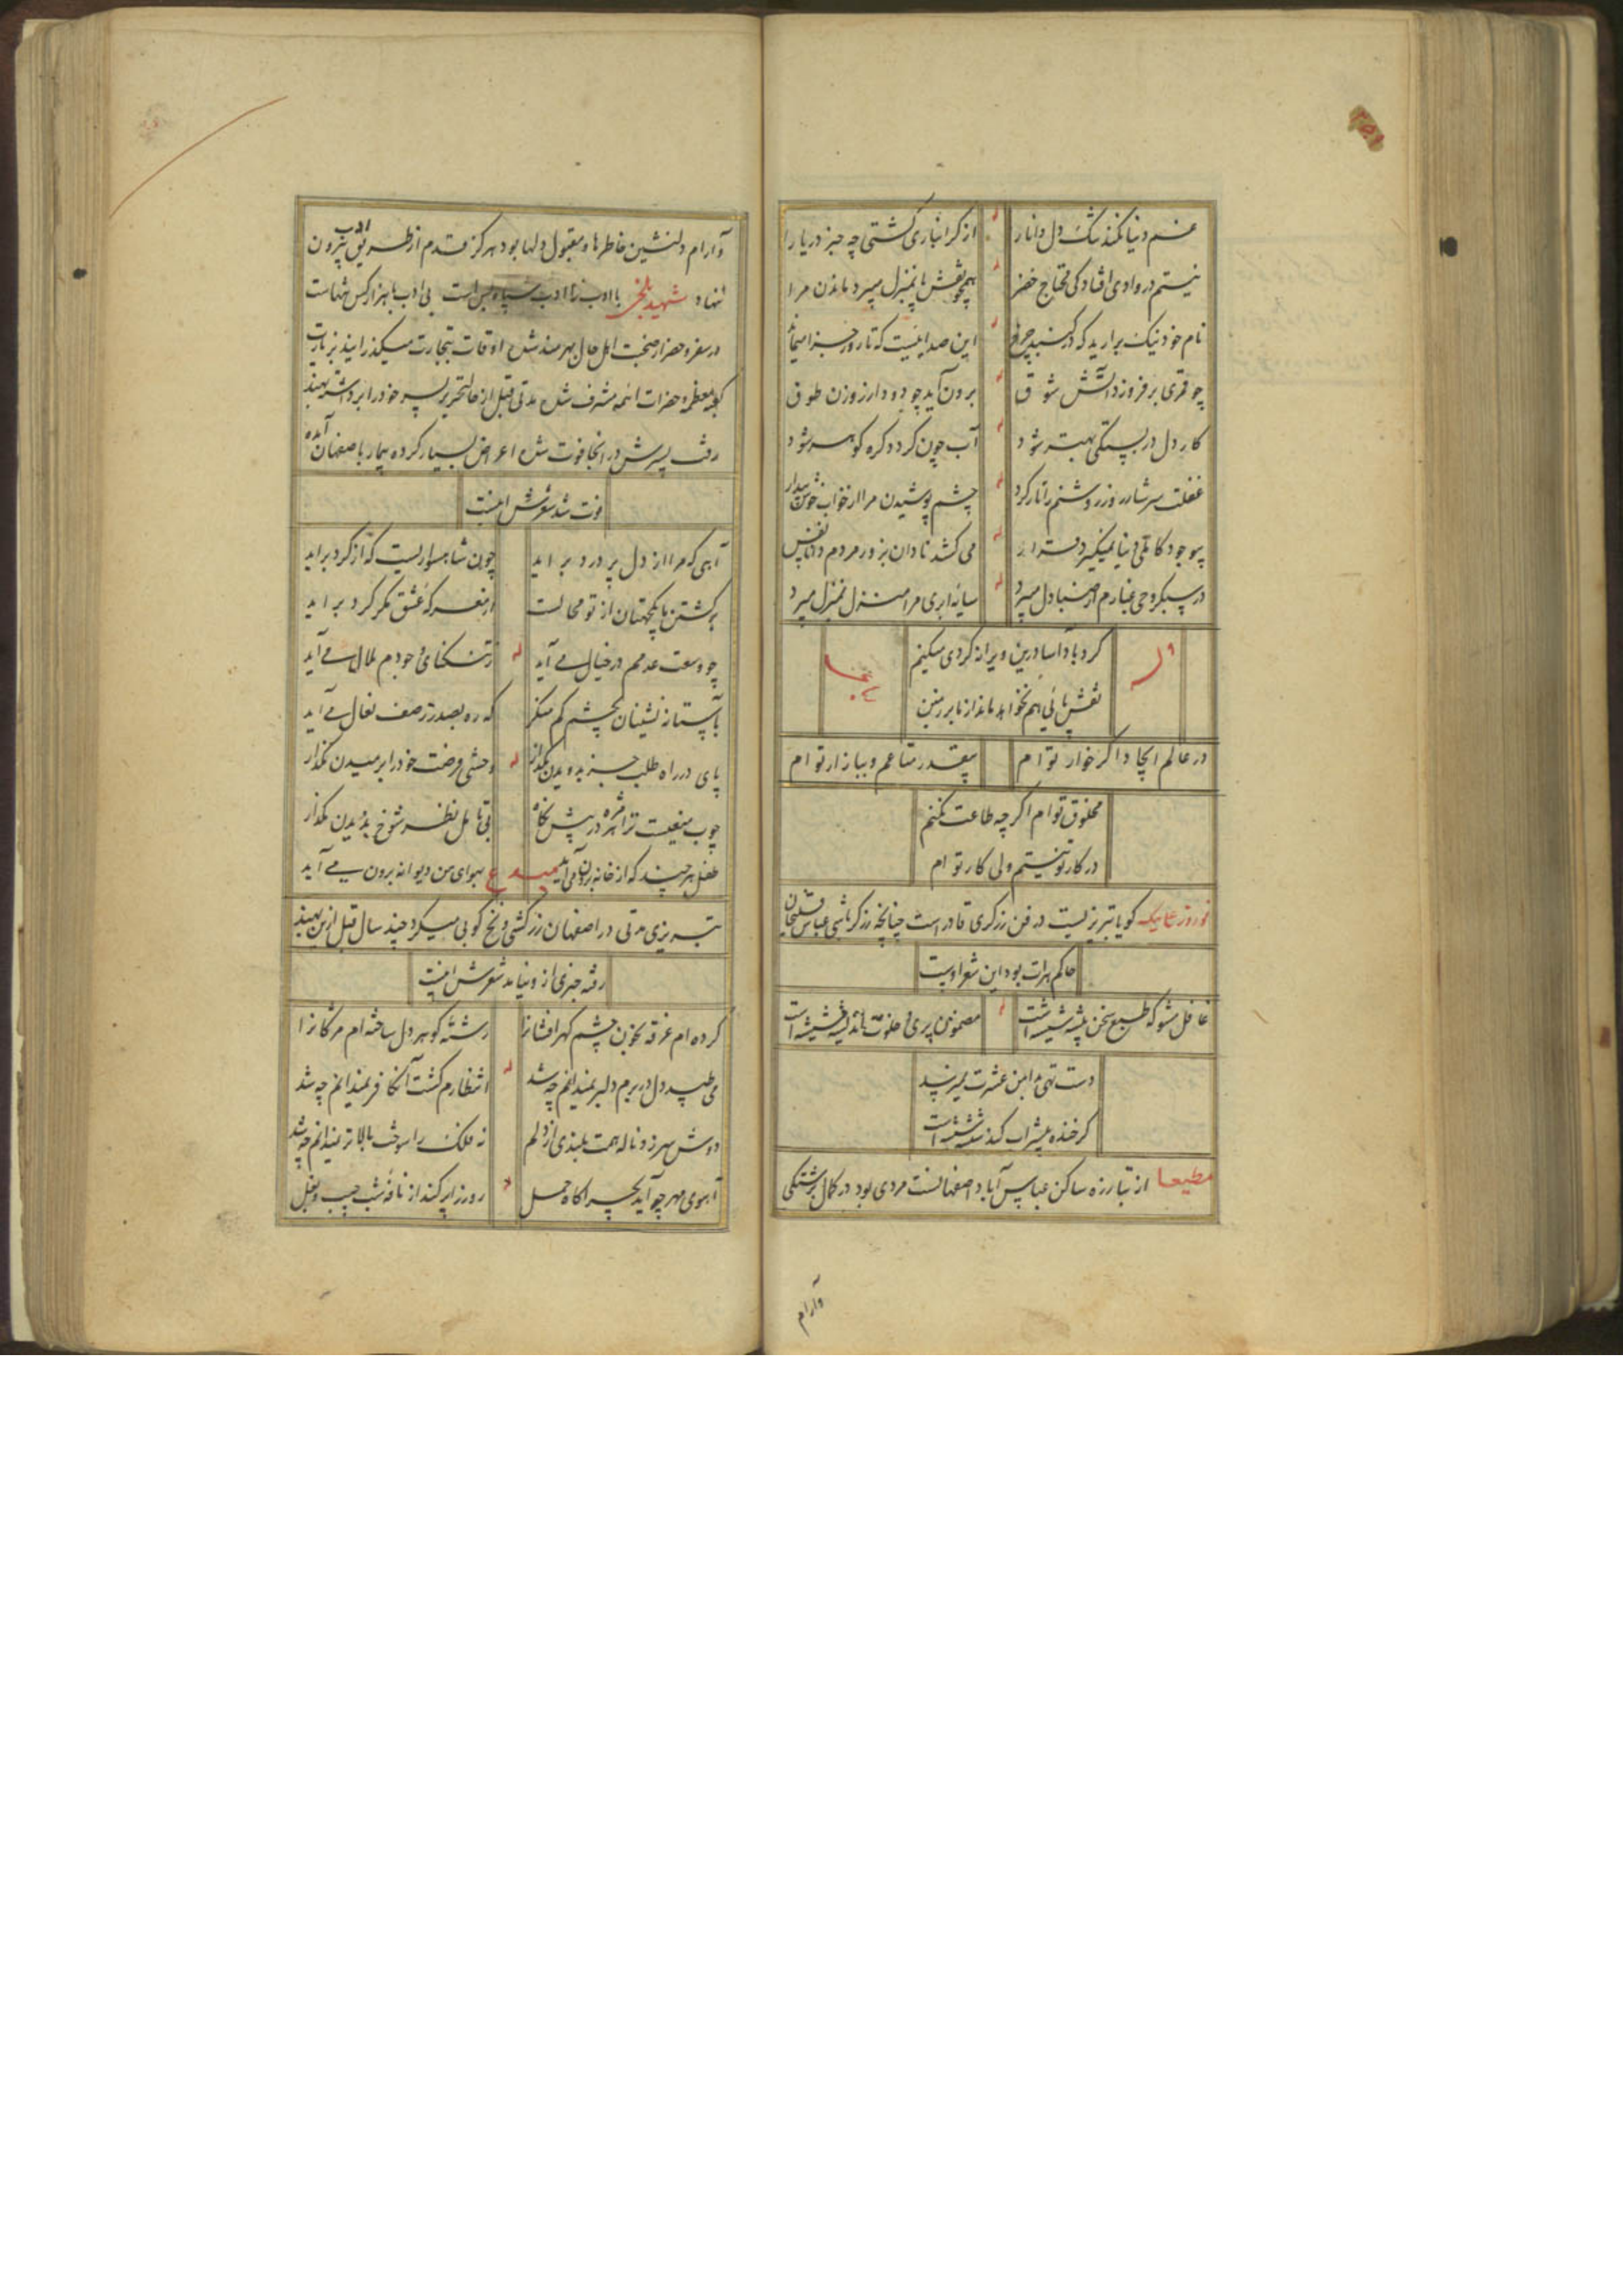 غم دنیا نکند تنگ دل دانا را از گرانباری کشتی چه خبر دریا را
نیستم در وادی افتادگی محتاج خضر همچو نقش پا بمنزل میبرد ماندن مرا
نام خود نیک برارید که در گنبد چرخ این صدائیست که تا روز جزا میماند
چو قمری بر فروزد آتش شوق برون آید چو دود از روزن طوق
کار دل در بستگی بهتر شود آب چون گردد گره گوهر شود
غفلت سرشار روز روشنم را تار کرد چشم پوشیدن مرا از خواب خوش بیدار
بوجود کاملی دنیا نمیگیرد قرار می کشد نادان بزور مردم دانا نفس
در سبکروحی غبارم از صبا دل میبرد سایه ابری مرا منزل بمنزل میبرد
وله
گردباد آسا درین ویرانه گردی میکنیم
نقش پائی هم نخواهد ماند از ما بر زمین
در عالم ایجاد اگر خوار توام بیقدر متاعم و ببازار توام
مخلوق توام اگر چه طاعت نکنم
در کار تو نیستم ولی کار توام
نوروز علی بیک گویا تبریزیست در فن زرگری قادر است چنانچه زرگر باشی عباسقلیخان
حاکم هرات بود این شعر اوست
غافل مشو که طبع سخن پیشه شیشه است مضمون پری و خلوت اندیشه شیشه است
دست تهی بدامن عشرت نمیرسد
گر خنده شراب کند شیشه است
مطیعا از تبارزه ساکن عباس آباد اصفهانست مردی بود در کمال برشتگی
وآرام
وآرام دلنشین خاطرها و مقبول دلها بود هرگز قدم از طریق ادب بیرون
ننهاد شهید بلخی با ادب را ادب سپاه بس است بی ادب با هزار کس تنهاست
در سفر و حضر از صحبت اهل حال بهرمند شده اوقات بتجارت میگذرانید بزیارت
کعبه معظمه و حضرات ائمه مشرف شده مدتی قبل از حالتحریر پسر خود را برداشته بهند
رفت پسرش در انجا فوت شده اعراض بسیار کرده بیمار باصفهان آمده
فوت شد شعرش اینست
آهی که مرا از دل پر درد براید چون شاهسواریست که از گرد براید
برگشتن ما یکجهتان از تو محالست از معرکه عشق مگر گرد براید
چو وسعت عدمم در خیال می آید ز تنگنای وجودم ملال می آید
بآستانه نشینان بچشم کم منگر که ره بصدر ز صف نعال می آید
پای در راه طلب جز بدویدن مگذار وحشی فرصت خود را برمیدن مگذار
چوب منعیست ترا هر مژه در پیش نگاه بی تامل نظر شوخ بدیدن مگذار
طفل هر چند که از خانه برون می آید بهوای من دیوانه برون می آید
مبدع
تبریزی مدتی در اصفهان زرکشی و نخ کوبی میکرد چند سال قبل ازین بهند
رفته خبری ازو نیامد شعرش اینست
کرده ام غرقه بخون چشم گهر افشان را رشته گوهر دل ساخته ام مژگان را
می طپد دل در برم دلبر نمیدانم چه شد انتظارم کشت آن کافر نمیدانم چه شد
دوش سر زد ناله همت بلندی از دلم نه فلک را سوخت بالاتر نمیدانم چه شد
آهوی مهر چو آید بچراگاه حمل روز را پر کند از نافه شب جیب و بغل